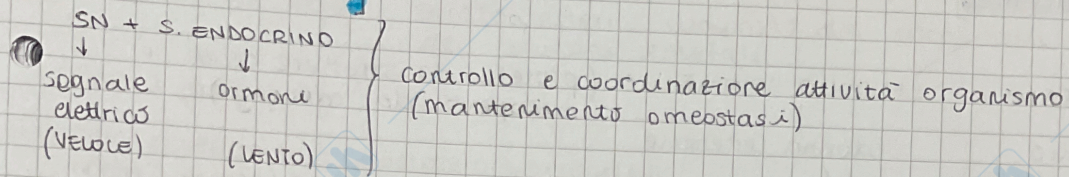 SN + S. ENDOCRINO
↓ ↓
segnale ormone
elettrico
(VELOCE) (LENTO)
controllo e coordinazione attività organismo
(mantenimento omeostasi)